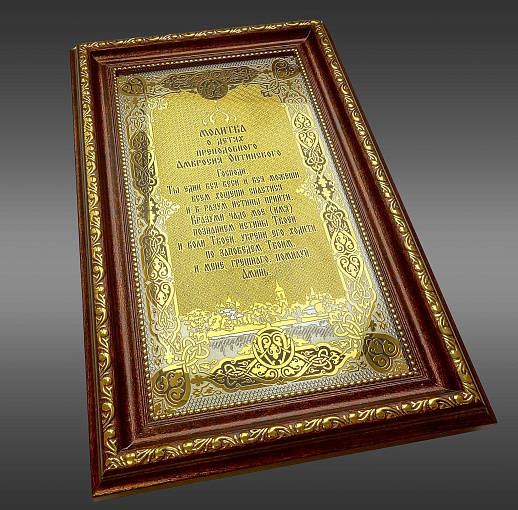 Молитва
о детях
преподобного
Амвросия Оптинского
Господи,
Ты един вся веси и вся можеши
всем хощеши спастися
и в разум истины приити.
Вразуми чадо мое (имя)
познанием истины Твоей
и воли Твоей, укрепи его ходити
по заповедем Твоим
и мене, грешнаго, помилуй
Аминь.